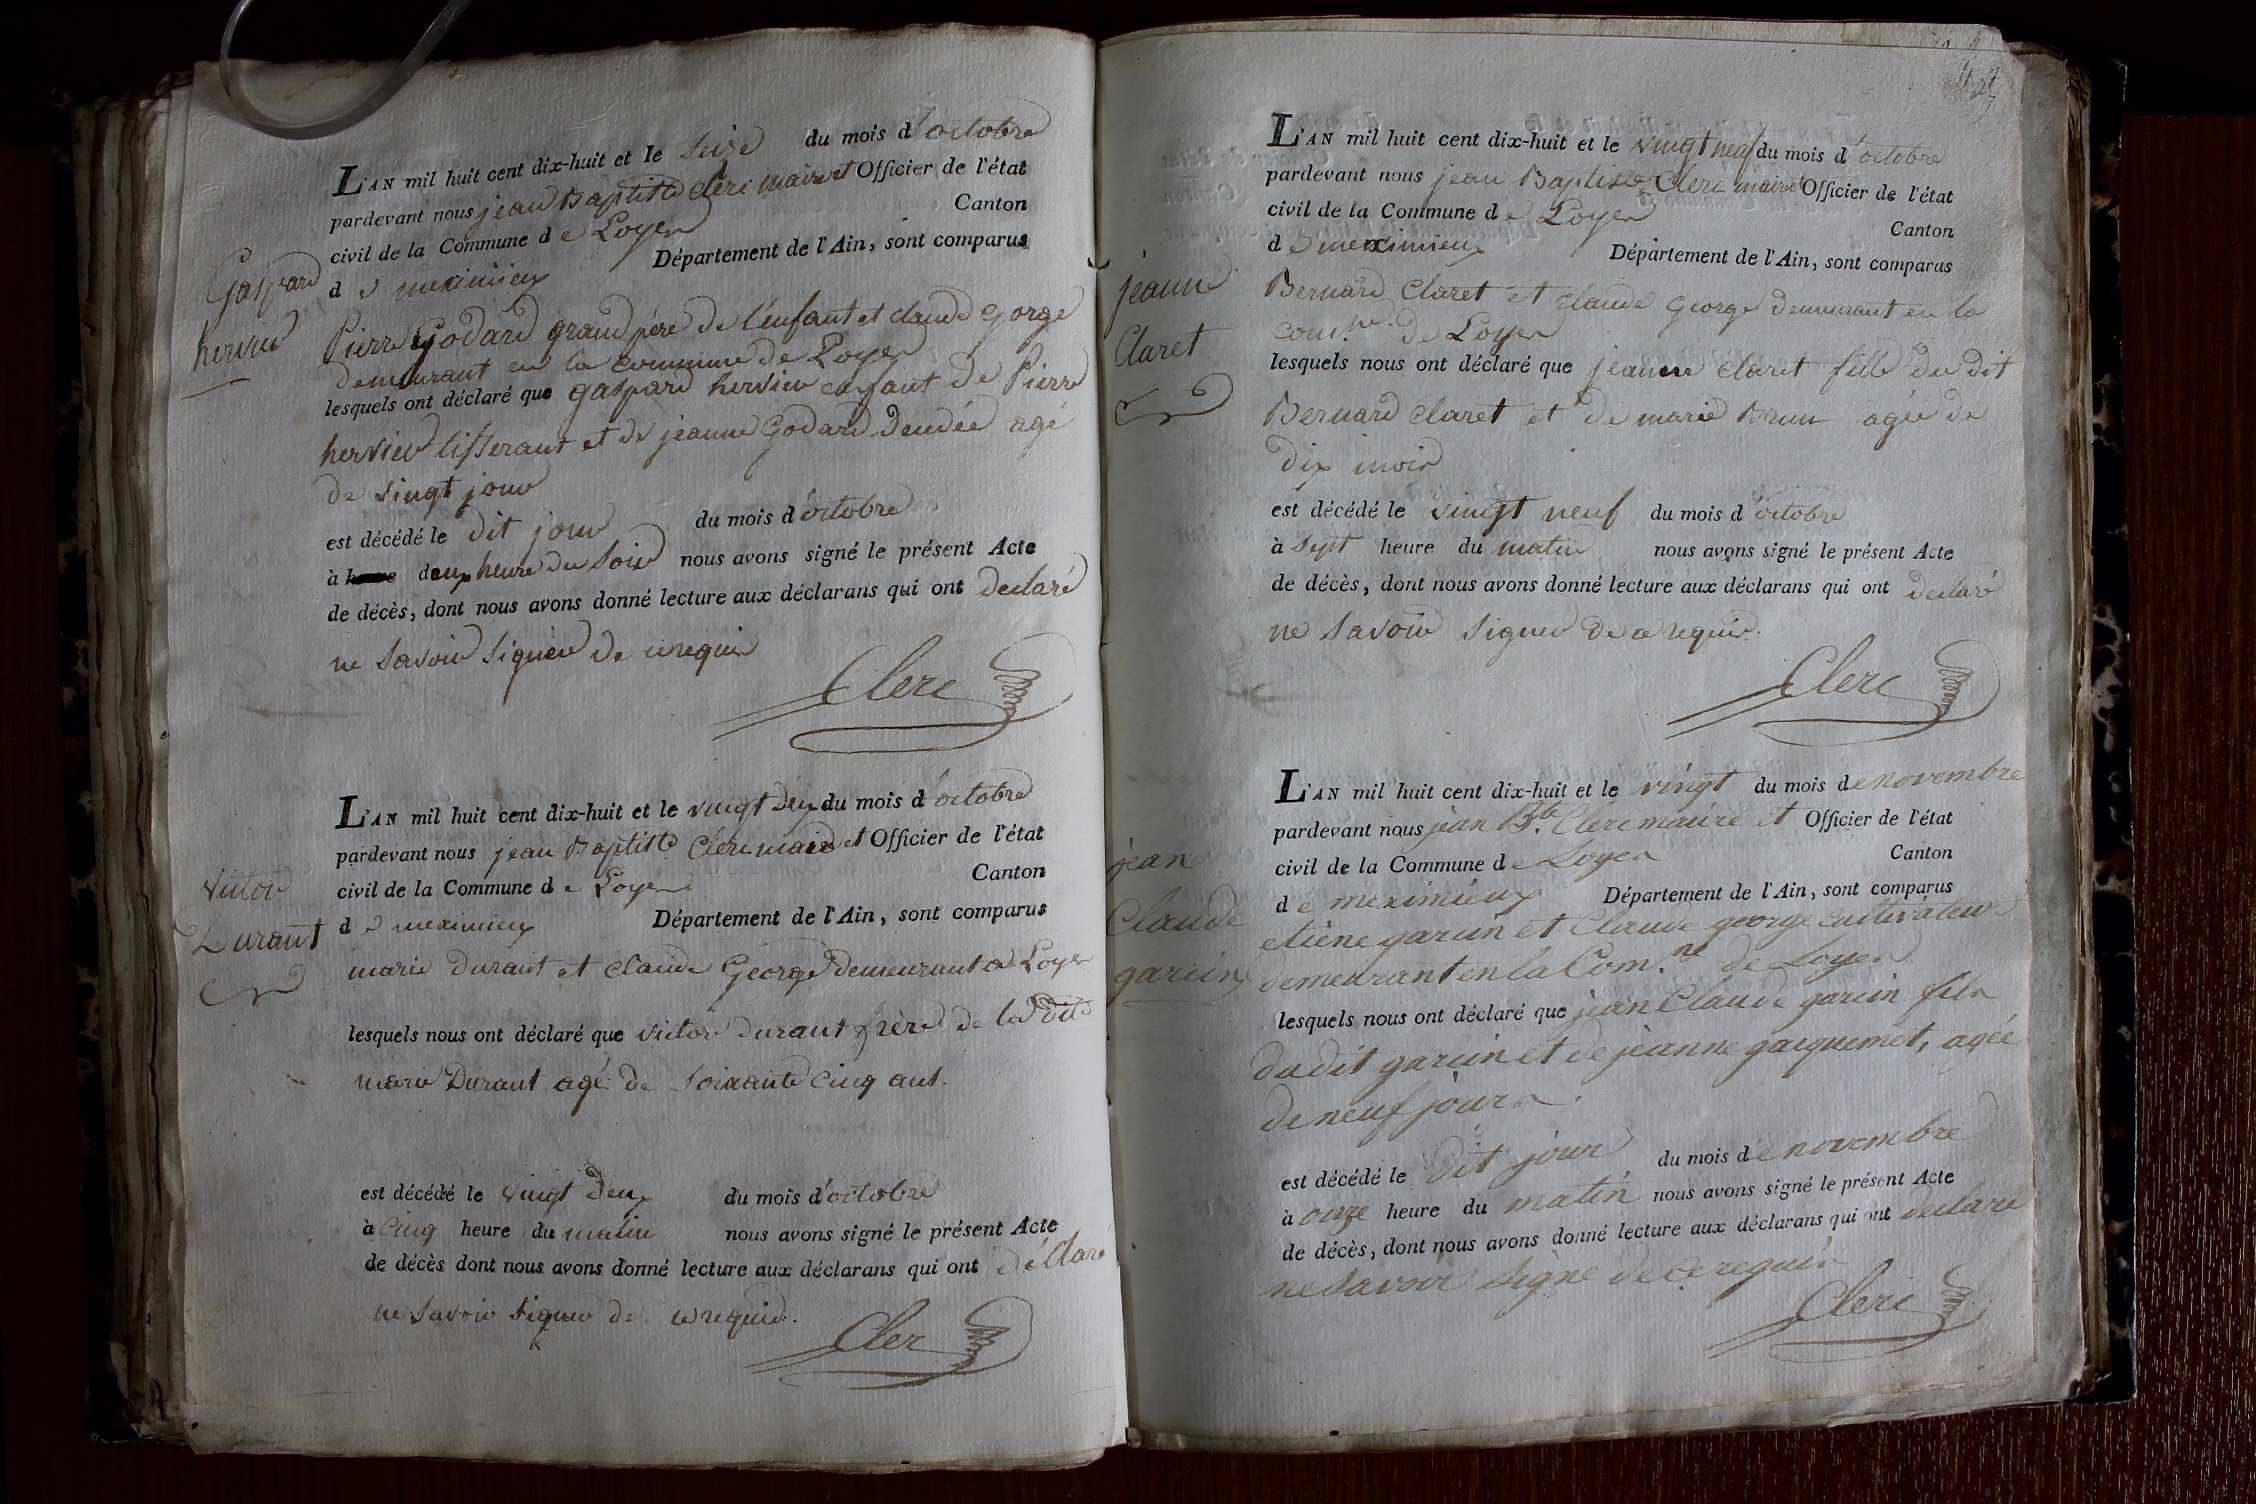 L'AN mil huit cent dix-huit et le seize du mois d'octobre
pardevant nous jean Baptiste Clerc maire et Officier de l'état
civil de la Commune de Loyes Canton
de meximieux Département de l'Ain, sont comparus
Gaspard
hervieu
Pierre Godard grand père de l'enfant et claude George
demeurant en la commune de Loyes
lesquels ont déclaré que gaspard hervieu enfant de Pierre
hervieu tisserant et de jeanne Godard agé
de vingt jour
est décédé le dit jour du mois d'octobre
à deux heure du soir nous avons signé le présent Acte
de décès, dont nous avons donné lecture aux déclarans qui ont declaré
ne savoir signer de ce requis
Clerc
L'AN mil huit cent dix-huit et le vingt deux du mois d'octobre
pardevant nous jean Baptiste Clerc maire et Officier de l'état
civil de la Commune de Loyes Canton
de meximieux Département de l'Ain, sont comparus
victor
Durant
marie Durant et claude George demeurant a Loyes
lesquels nous ont déclaré que victor durant frère de la dite
marie Durant agé de soixante cinq ans.
est décédé le vingt deux du mois d'octobre
à cinq heure du matin nous avons signé le présent Acte
de décès dont nous avons donné lecture aux déclarans qui ont déclaré
ne savoir signer de ce requis.
Clerc
L'AN mil huit cent dix-huit et le vingt neuf du mois d'octobre
pardevant nous jean Baptiste Clerc maire et Officier de l'état
civil de la Commune de Loyes Canton
de meximieux Département de l'Ain, sont comparus
jeanne
Claret
Bernard Claret et claude George demeurant en la
comne. de Loyes
lesquels nous ont déclaré que jeanne claret fille du dit
Bernard claret et de marie Brun agée de
dix mois
est décédé le vingt neuf du mois d'octobre
à sept heure du matin nous avons signé le présent Acte
de décès, dont nous avons donné lecture aux déclarans qui ont declaré
ne savoir signer de ce requis.
Clerc
L'AN mil huit cent dix-huit et le vingt du mois de novembre
pardevant nous jean Bte. Clerc maire et Officier de l'état
civil de la Commune de Loyes Canton
de meximieux Département de l'Ain, sont comparus
jean
Claude
garcin
etiène garcin et Claude george cultivateur
demeurant en la Com.ne de Loyes
lesquels nous ont déclaré que jean Claude garcin fils
du dit garcin et de jeanne gacquemet, agée
de neuf jours.
est décédé le dit jour du mois de novembre
à onze heure du matin nous avons signé le présent Acte
de décès, dont nous avons donné lecture aux déclarans qui ont declaré
ne savoir signé de ce requis
Clerc